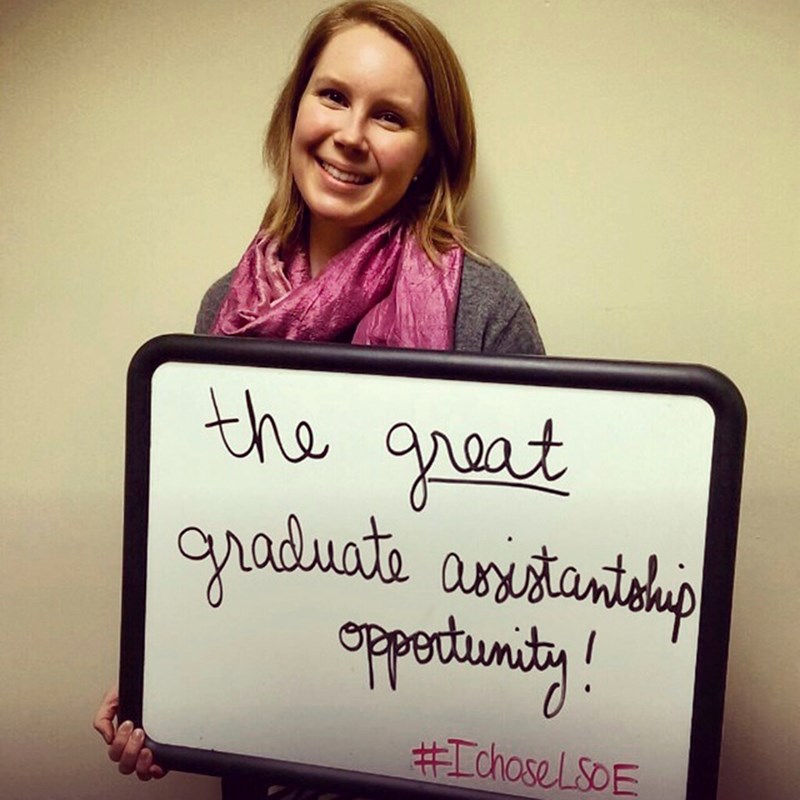 the great
graduate assistantship
opportunity!
#IchoseLSOE